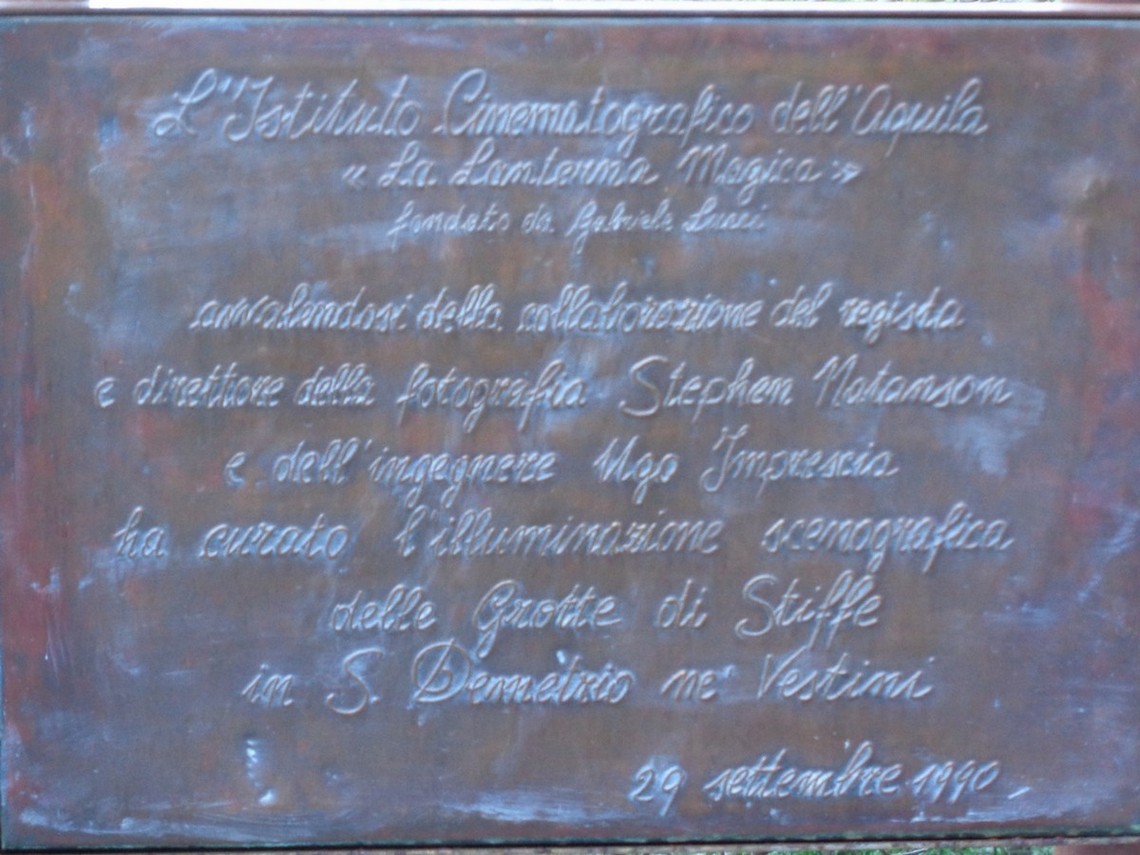 L'Istituto Cinematografico dell'Aquila
« La Lanterna Magica »
fondato da Gabriele Lucci
avvalendosi della collaborazione del regista
e direttore della fotografia Stephen Natanson
e dell'ingegnere Ugo Imprescia
ha curato l'illuminazione scenografica
delle Grotte di Stiffe
in S. Demetrio ne' Vestini
29 settembre 1990